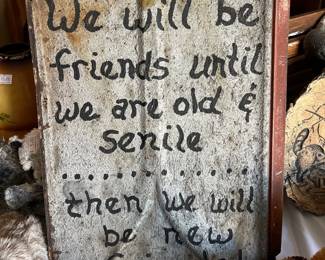 We will be
friends until
we are old &
senile
..............
then we will
be new
friends!